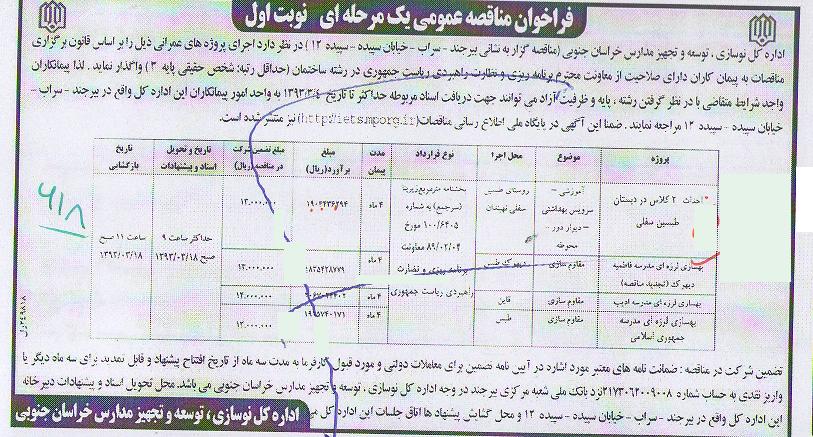 فراخوان مناقصه عمومی یک مرحله ای نوبت اول
اداره کل نوسازی ، توسعه و تجهیز مدارس خراسان جنوبی (مناقصه گزار به نشانی بیرجند - سراب - خیابان سپیده - سپیده ۱۲ ) در نظر دارد اجرای پروژه های عمرانی ذیل را بر اساس قانون برگزاری
مناقصات به پیمان کاران دارای صلاحیت از معاونت محترم برنامه ریزی و نظارت راهبردی ریاست جمهوری در رشته ساختمان (حداقل رتبه: شخص حقیقی پایه ۳ ) واگذار نماید . لذا پیمانکاران
واجد شرایط متقاضی با در نظر گرفتن رشته ، پایه و ظرفیت آزاد می توانند جهت دریافت اسناد مربوطه حداکثر تا تاریخ ۱۳۹۳/۳/۴ به واحد امور پیمانکاران این اداره کل واقع در بیرجند - سراب -
خیابان سپیده - سپیده ۱۲ مراجعه نمایند . ضمنا این آگهی در پایگاه ملی اطلاع رسانی مناقصات (http://iets.mporg.ir) نیز منتشر شده است.
پروژه موضوع محل اجرا نوع قرارداد مبلغ برآورد(ریال) مدت پیمان مبلغ تضمین شرکت در مناقصه (ریال) تاریخ و تحویل اسناد و پیشنهادات تاریخ بازگشایی
احداث ۲ کلاس در دبستان طبسین سفلی آموزشی - سرویس بهداشتی - دیوار دور - محوطه روستای طبسین سفلی نهبندان ۴ ماه ۱۳.۰۰۰.۰۰۰
بخشنامه مترمربع زیربنا (سرجمع) به شماره ۱۰۰/۶۴۰۵ مورخ ۸۹/۰۲/۰۴ معاونت برنامه ریزی و نظارت راهبردی ریاست جمهوری
حداکثر ساعت ۹ صبح ۱۳۹۳/۰۳/۱۸
ساعت ۱۱ صبح ۱۳۹۳/۰۳/۱۸
بهسازی لرزه ای مدرسه فاطمیه دیهوک (تجدید مناقصه) مقاوم سازی دیهوک طبس ۴ ماه ۱۳.۰۰۰.۰۰۰
بهسازی لرزه ای مدرسه ادیب مقاوم سازی قاین ۴ ماه ۱۴.۰۰۰.۰۰۰
بهسازی لرزه ای مدرسه جمهوری اسلامی مقاوم سازی طبس ۴ ماه ۱۳.۰۰۰.۰۰۰
۶۱۸
تضمین شرکت در مناقصه : ضمانت نامه های معتبر مورد اشاره در آیین نامه تضمین برای معاملات دولتی و مورد قبول کارفرما به مدت سه ماه از تاریخ افتتاح پیشنهاد و قابل تمدید برای سه ماه دیگر یا
واریز نقدی به حساب شماره ۲۱۷۳۰۶۲۰۰۹۰۰۸ نزد بانک ملی شعبه مرکزی بیرجند در وجه اداره کل نوسازی ، توسعه و تجهیز مدارس خراسان جنوبی می باشد. محل تحویل اسناد و پیشنهادات دبیرخانه
این اداره کل واقع در بیرجند - سراب - خیابان سپیده - سپیده ۱۲ و محل گشایش پیشنهاد ها اتاق جلسات این اداره کل
اداره کل نوسازی ، توسعه و تجهیز مدارس خراسان جنوبی